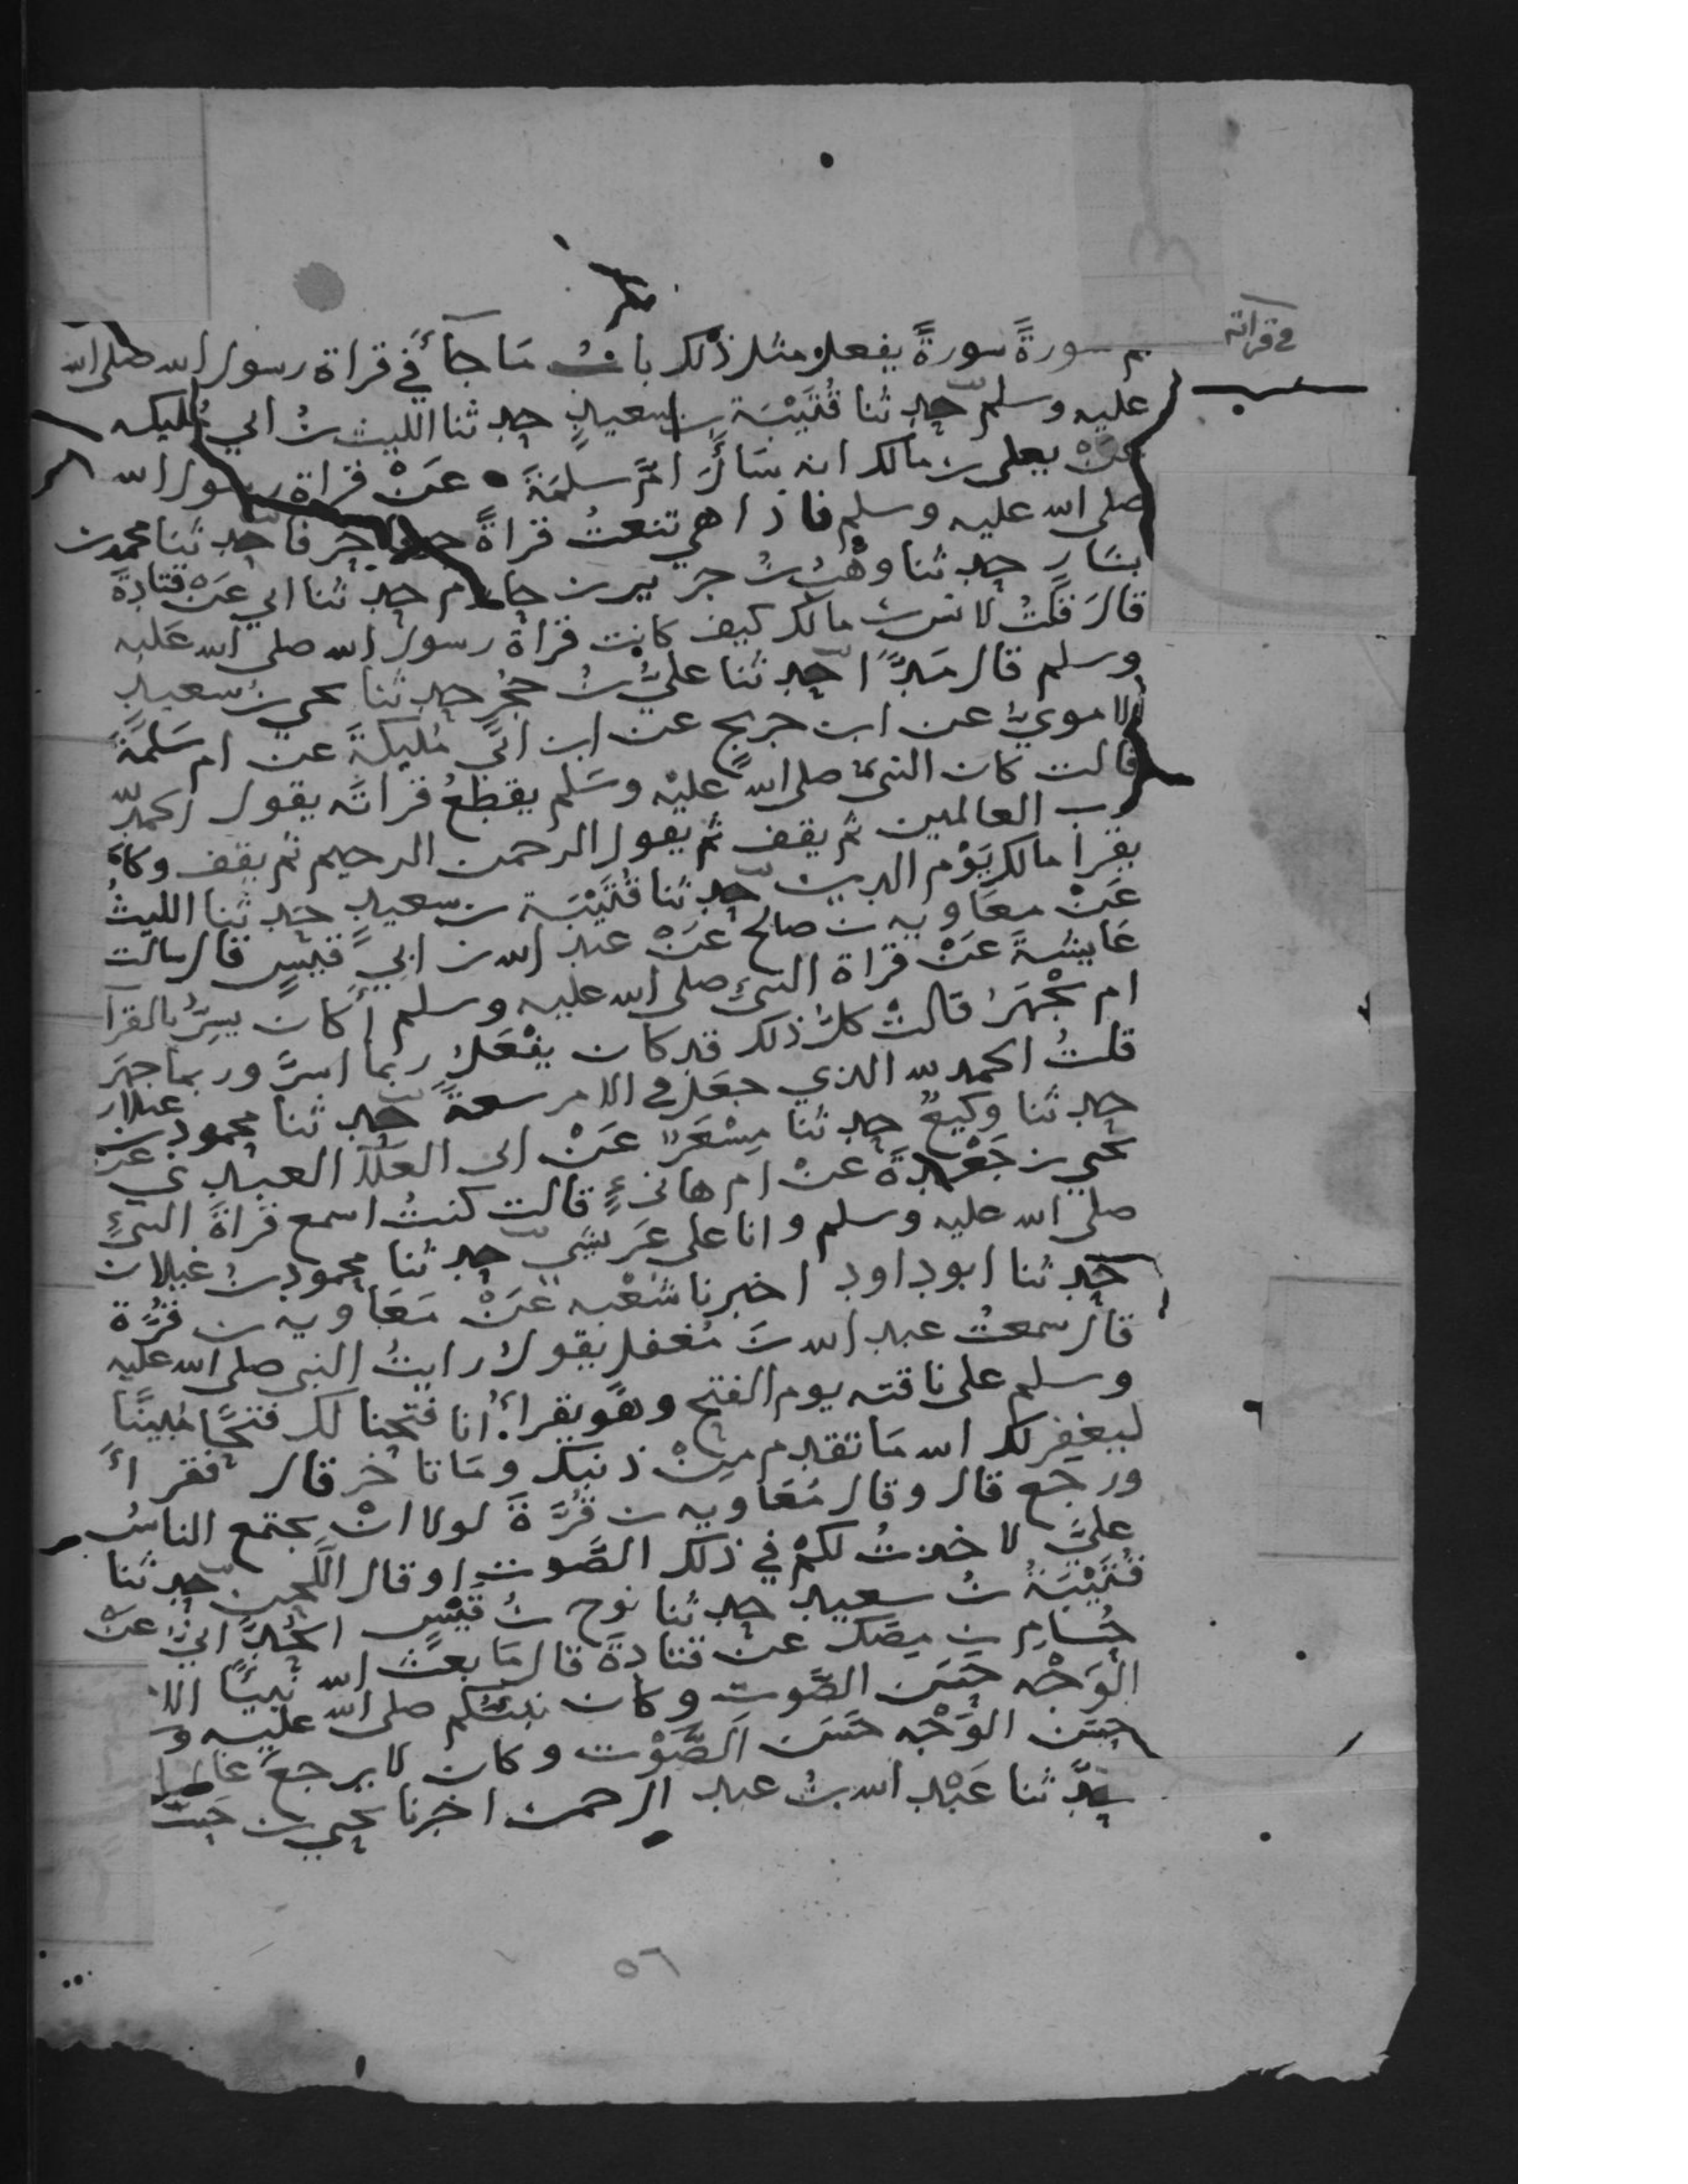 في قراته
ثم سورةً سورةً يفعل مثل ذلك باب ما جآ في قراة رسول الله صلى الله
عليه وسلم حدثنا قُتَيْبَة بن سعيدٍ حدثنا الليث بن ابي مُليكه
عَنْ يعلى بن مالك انه سَأَلَ امَّ سلمَةَ عَنْ قراة رسول الله
صلى الله عليه وسلم فاذا هي تنعتُ قراةً حرفا حرفا حدثنا محمد بن
بشار حدثنا وهْبُ بنُ جرير بن حازم حدثنا ابي عَنْ قتادةَ
قالَ قلتُ لانس بن مالك كيف كانت قراة رسول الله صلى الله عليه
وسلم قال مَدًّا حدثنا عليُّ بنُ حجُر حدثنا يحيى بنُ سعيدٍ
الاموي عن ابن جريج عن ابن ابي مُليكةَ عن ام سَلمَةَ
قالت كان النبي صلى الله عليْه وسَلم يقطعُ قراتَه يقول الحمدلله
رب العالمين ثم يقف ثم يقول الرحمن الرحيم ثم يقف وكان
يقرا مالك يَوْم الدين حدثنا قُتَيْبَة بن سعيدٍ حدثنا الليثُ
عَنْ معَاويه بن صالح عَنْ عبد الله بن ابي قيسٍ قال سالت
عَايشةَ عَنْ قراة النبيِ صلى الله عليه وسلم أكان يسِرُّ بالقرآ
ام يجْهَرُ قالتْ كلُّ ذلك قد كان يفْعَلُ ربما اسرَّ وربما جهَر
قلتُ الحمد لله الذي جعَل في الامر سعةً حدثنا محمود بن غيلان
حدثنا وكيعٌ حدثنا مِسْعَرٌ عَنْ ابى العلآ العبدي عَنْ
يحيى بن جَعْدةَ عنْ ام هانئٍ قالت كنتُ اسمع قراةَ النبيِ
صلى الله عليه وسلم وانا على عَريشي حدثنا محمود بنُ غيلان
حدثنا ابو داود اخبرنا شُعْبه عَنْ مَعَاويه بن قُرَّة
قال سمعتُ عبد الله بنَ مُغفل يقولُ رايتُ النبي صلى الله عليه
وسلم على ناقته يوم الفتح وهو يقرأُ انا فتحنا لك فتحًا مُبينًا
ليغفِرَ لك الله مَا تقدم مِنْ ذنبك ومَا تاخر قال فقرأ
ورجع قال وقال مُعَاويه بن قُرَّةَ لولا انْ يجتمع الناسُ
عليَّ لاخذتُ لكمْ في ذلك الصَّوت او قال اللَّحن حدثنا
قُتَيْبَةُ بنُ سعيد حدثنا نوح بنُ قَيْسٍ الحُدَّانيُّ عَنْ
حُسامِ بن مِصَك عن قتادةَ قال مَا بعَثَ الله نبيًّا الا
الْوَجْه حَسَن الصَّوت وكان نبيُّكم صلى الله عليه و
حسَن الوَجْه حَسَن الصَّوْت وكان لا يرجعُ
حدَّثنا عَبْد الله بنُ عبد الرحمن اخبرنا يحيى بن حَسَّ
٥٦